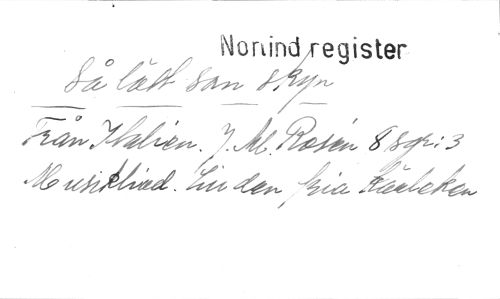 Nonind register
Så lätt som skyn
Från Italien. J. M. Rosén 8 sgr: 3
Musikblad. Linden fria kärleken